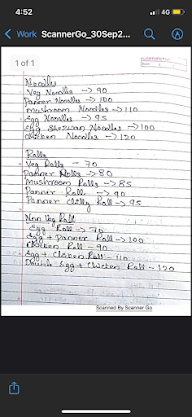 4:52
4G
Work ScannerGo_30Sep2...
1 of 1
Noodles
Veg Noodles -> 90
Panner Noodles -> 100
Mushroom Noodles -> 110
Egg Noodles -> 95
Egg Shezwan Noodles -> 100
Chicken Noodles -> 120
Rolls
Veg Rolls - 70
Panner Rolls -> 80
Mushroom Rolls -> 85
Panner Rolls -> 90
Panner chilly Roll -> 95
Non Veg Roll
Egg Roll -> 70
Egg + Panner Roll -> 100
Chicken Roll - 90
Egg + Chicken Roll - 110
Double Egg + Chicken Roll - 120
Scanned By Scanner Go